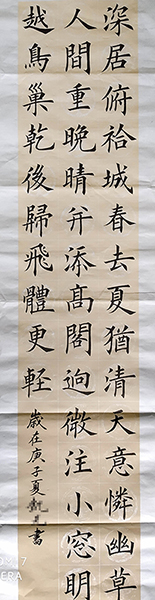 深居俯袷城春去夏猶清天意憐幽草
人間重晚晴并添高閣迥微注小窓明
越鳥巢乾後歸飛體更軽
歲在庚子夏